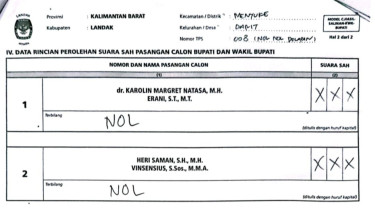 Provinsi : KALIMANTAN BARAT
Kabupaten : LANDAK
Kecamatan / Distrik : MENJUKE
Kelurahan / Desa : DARIT
Nomor TPS : 008 (NOL NOL DELAPAN)
MODEL C.HASIL-SALINAN-KWK-BUPATI
Hal 2 dari 2
IV. DATA RINCIAN PEROLEHAN SUARA SAH PASANGAN CALON BUPATI DAN WAKIL BUPATI
NOMOR DAN NAMA PASANGAN CALON
SUARA SAH
(1)
(2)
1
dr. KAROLIN MARGRET NATASA, M.H.
ERANI, S.T., M.T.
X X X
Terbilang
NOL
(ditulis dengan huruf kapital)
2
HERI SAMAN, S.H., M.H.
VINSENSIUS, S.Sos., M.M.A.
X X X
Terbilang
NOL
(ditulis dengan huruf kapital)